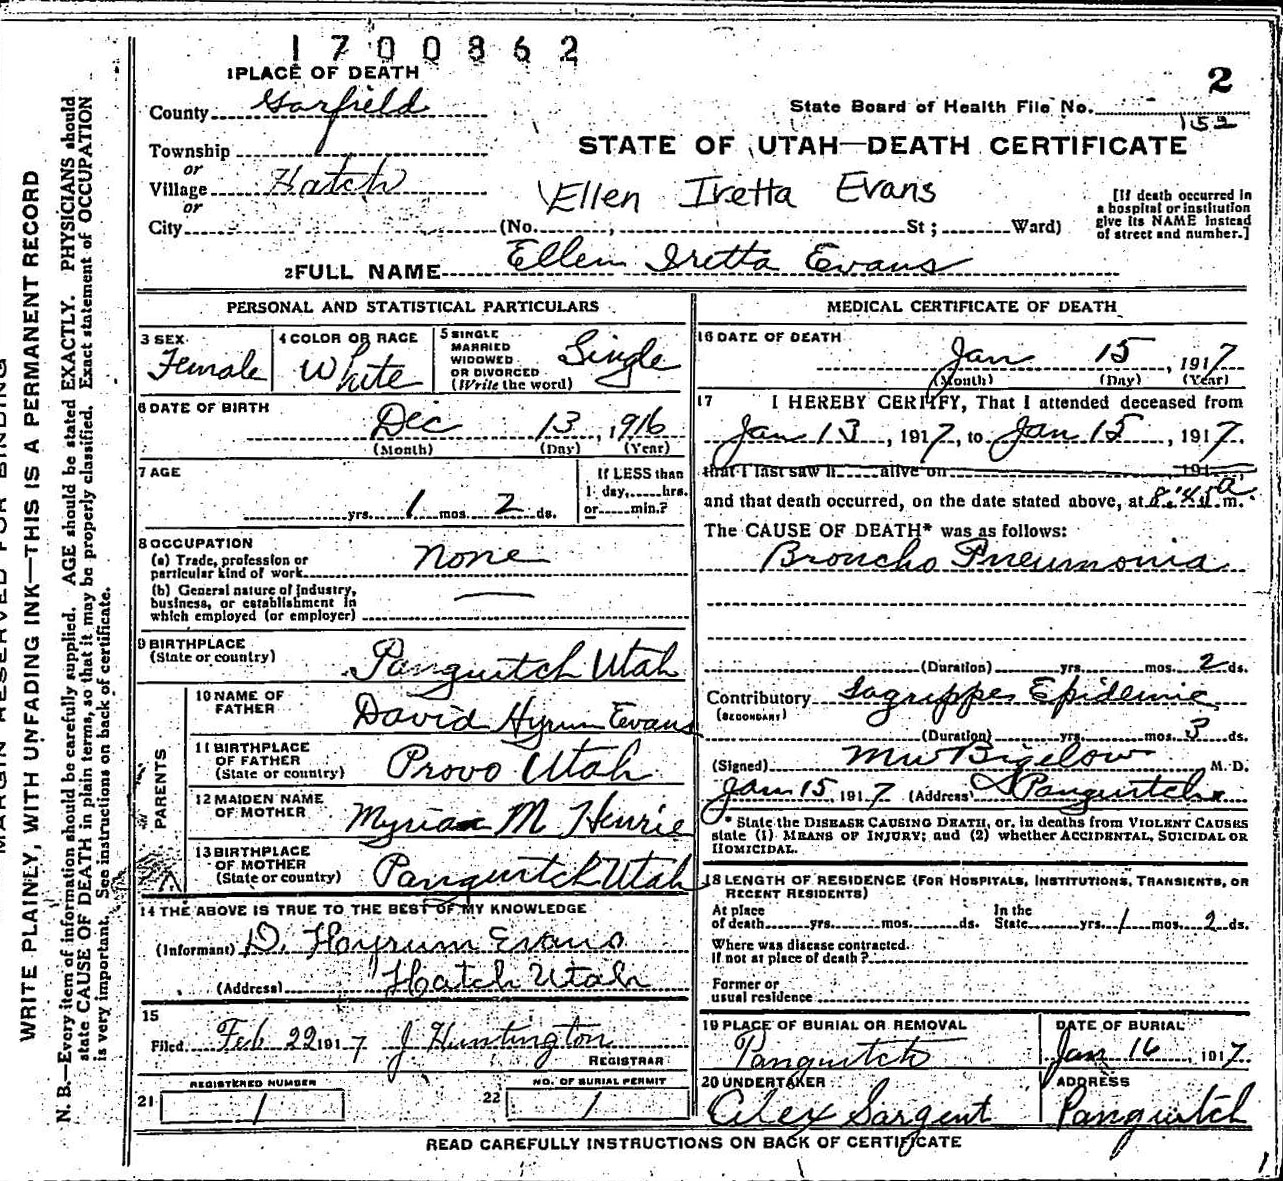 1700862
1 PLACE OF DEATH
2
County Garfield
State Board of Health File No. 152
Township
or
STATE OF UTAH—DEATH CERTIFICATE
Village Hatch
or
Ellen Iretta Evans
[If death occurred in
a hospital or institution
give its NAME instead
of street and number.]
City
(No. , St ; Ward)
2 FULL NAME Ellen Iretta Evans
PERSONAL AND STATISTICAL PARTICULARS
3 SEX
Female
4 COLOR OR RACE
White
5 SINGLE
MARRIED
WIDOWED
OR DIVORCED
(Write the word)
Single
6 DATE OF BIRTH
Dec 13, 1916
(Month) (Day) (Year)
7 AGE
yrs. 1 mos. 2 ds.
If LESS than
1 day, hrs.
or min.?
8 OCCUPATION
(a) Trade, profession or
particular kind of work None
(b) General nature of industry,
business, or establishment in
which employed (or employer) —
9 BIRTHPLACE
(State or country) Panguitch Utah
PARENTS
10 NAME OF
FATHER David Hyrum Evans
11 BIRTHPLACE
OF FATHER
(State or country) Provo Utah
12 MAIDEN NAME
OF MOTHER M Henrie
13 BIRTHPLACE
OF MOTHER
(State or country) Panguitch Utah
14 THE ABOVE IS TRUE TO THE BEST OF MY KNOWLEDGE
(Informant) D. Hoyrum Evans
(Address) Hatch Utah
15
Filed Feb 22 1917 J Huntington
REGISTRAR
REGISTERED NUMBER
21 1
NO. OF BURIAL PERMIT
22 1
MEDICAL CERTIFICATE OF DEATH
16 DATE OF DEATH
Jan 15, 1917
(Month) (Day) (Year)
17 I HEREBY CERTIFY, That I attended deceased from
Jan 13, 1917, to Jan 15, 1917.
that I last saw h alive on 191
and that death occurred, on the date stated above, at 8:45 a m.
The CAUSE OF DEATH* was as follows:
Broncho Pneumonia
(Duration) yrs. mos. 2 ds.
Contributory Lagrippe Epidemic
(SECONDARY)
(Duration) yrs. mos. 3 ds.
(Signed) MW Bigelow M. D.
Jan 15, 1917 (Address) Panguitch
* State the DISEASE CAUSING DEATH, or, in deaths from VIOLENT CAUSES
state (1) MEANS OF INJURY; and (2) whether ACCIDENTAL, SUICIDAL OR
HOMICIDAL.
18 LENGTH OF RESIDENCE (FOR HOSPITALS, INSTITUTIONS, TRANSIENTS, OR
RECENT RESIDENTS)
At place
of death yrs. mos. ds.
In the
State yrs. 1 mos. 2 ds.
Where was disease contracted.
If not at place of death?
Former or
usual residence
19 PLACE OF BURIAL OR REMOVAL
Panguitch
DATE OF BURIAL
Jan 16, 1917.
20 UNDERTAKER
Alex Sargent
ADDRESS
Panguitch
READ CAREFULLY INSTRUCTIONS ON BACK OF CERTIFICATE
1
MARGIN RESERVED FOR BINDING
WRITE PLAINLY, WITH UNFADING INK—THIS IS A PERMANENT RECORD
N. B.—Every item of information should be carefully supplied. AGE should be stated EXACTLY. PHYSICIANS should
state CAUSE OF DEATH in plain terms, so that it may be properly classified. Exact statement of OCCUPATION
is very important. See instructions on back of certificate.